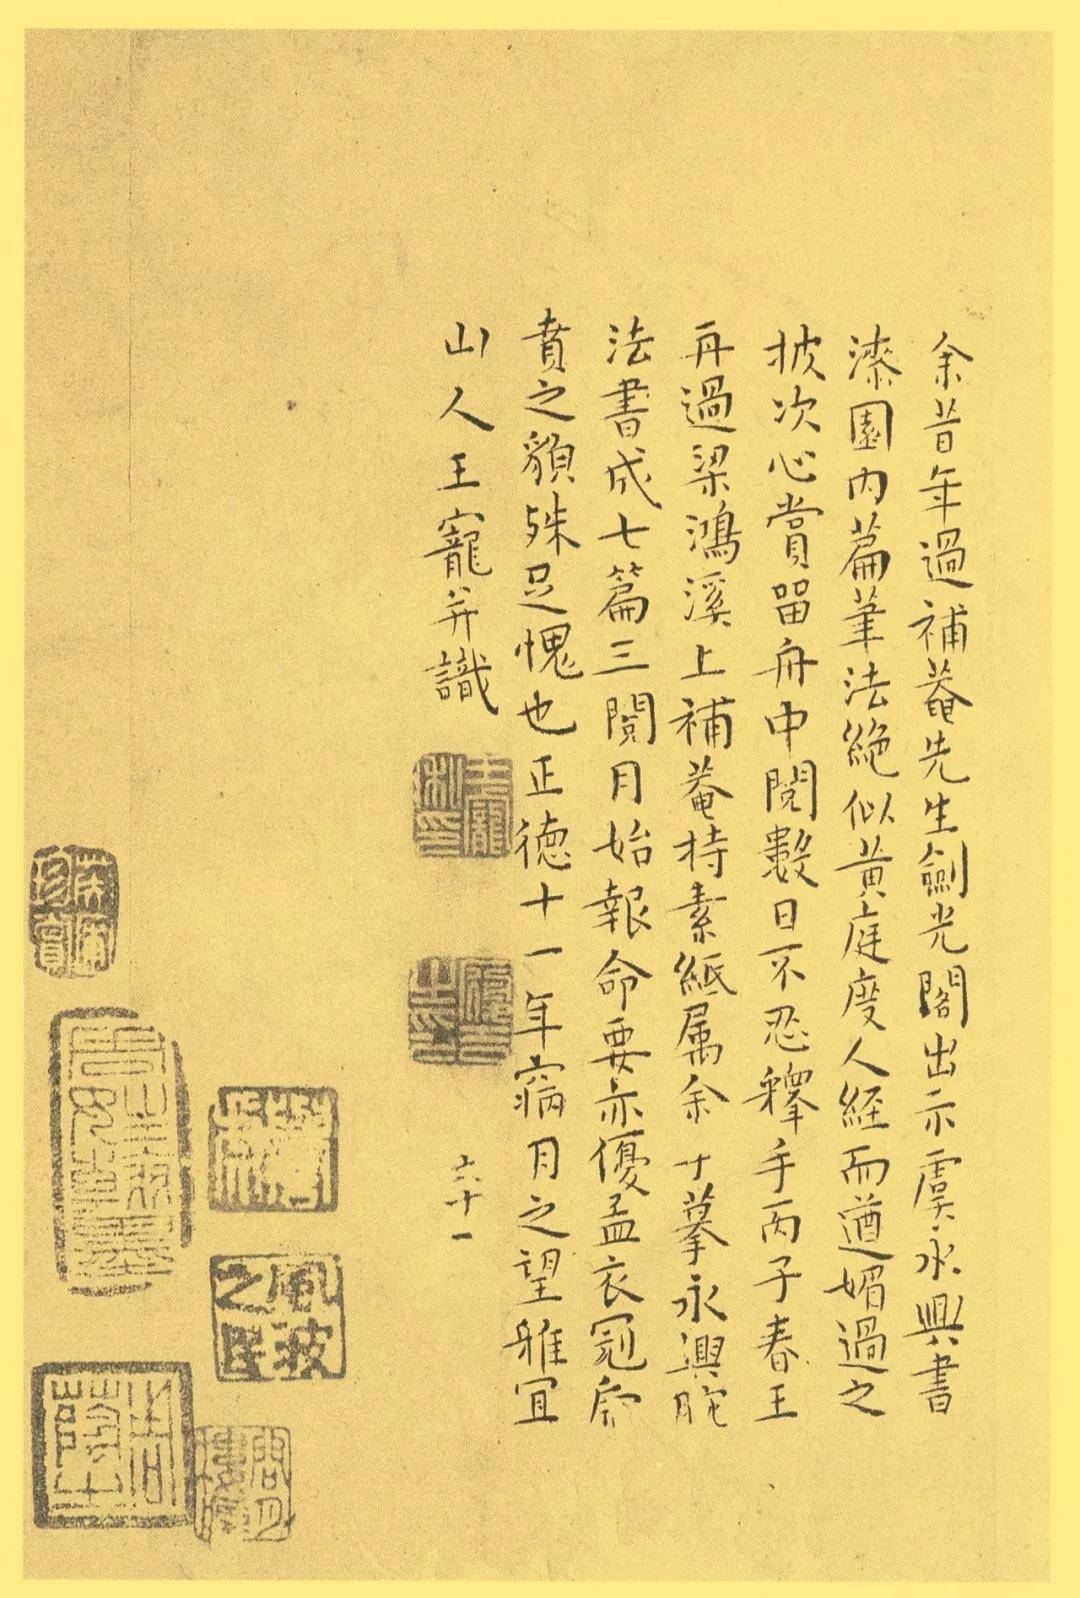 余昔年過補菴先生劍光閣出示虞永興書
漆園內篇筆法絕似黃庭度人經而遒媚過之
披次心賞留舟中閱數日不忍釋手丙子春王
舟過梁鴻溪上補菴持素紙屬余摹永興
法書成七篇三閱月始報命要亦優孟衣冠虎
賁之貌殊足愧也正德十一年寎月之望雅宜
山人王寵并識
六十一
王寵私印
風波之民